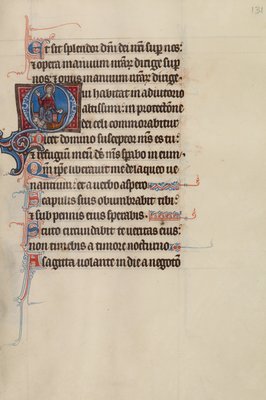 131
Et sit splendor dñi dei nři sup nos:
⁊ opera manuum nřar dirige sup
nos: ⁊ opus manuum nřar dirige.
Qui habitat in adiutorio
altissimi: in protectione
dei celi commorabitur
Dicet domino susceptor m̃s es tu:
⁊ refugiũ meũ ds̃ m̃s spabo in eum
Qm̃ ip̃e liberauit me de laqueo ue
nantium: et a uerbo aspero
Scapulis suis obumbrabit tibi:
⁊ sub pennis eius sperabis.
Scuto circumdabit te ueritas eius:
non timebis a timore nocturno.
A sagitta uolante in die a negotio